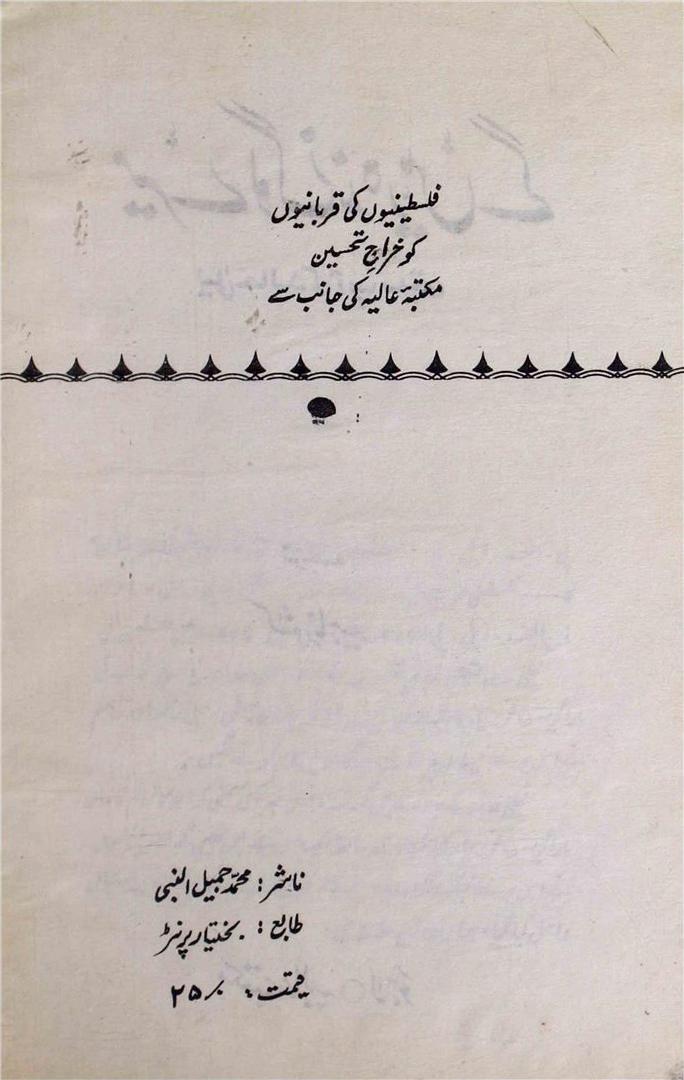 فلسطینیوں کی قربانیوں
کو خراجِ تحسین
مکتبۂ عالیہ کی جانب سے
ناشر: محمّد جمیل النبی
طابع: بختیار پرنٹرز
قیمت: ۲۵/